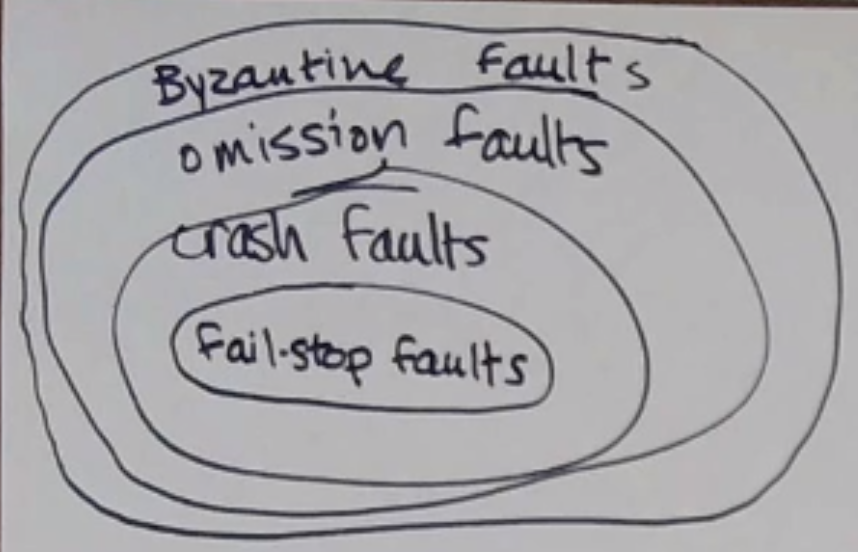 Byzantine Faults
omission faults
crash faults
Fail-stop faults